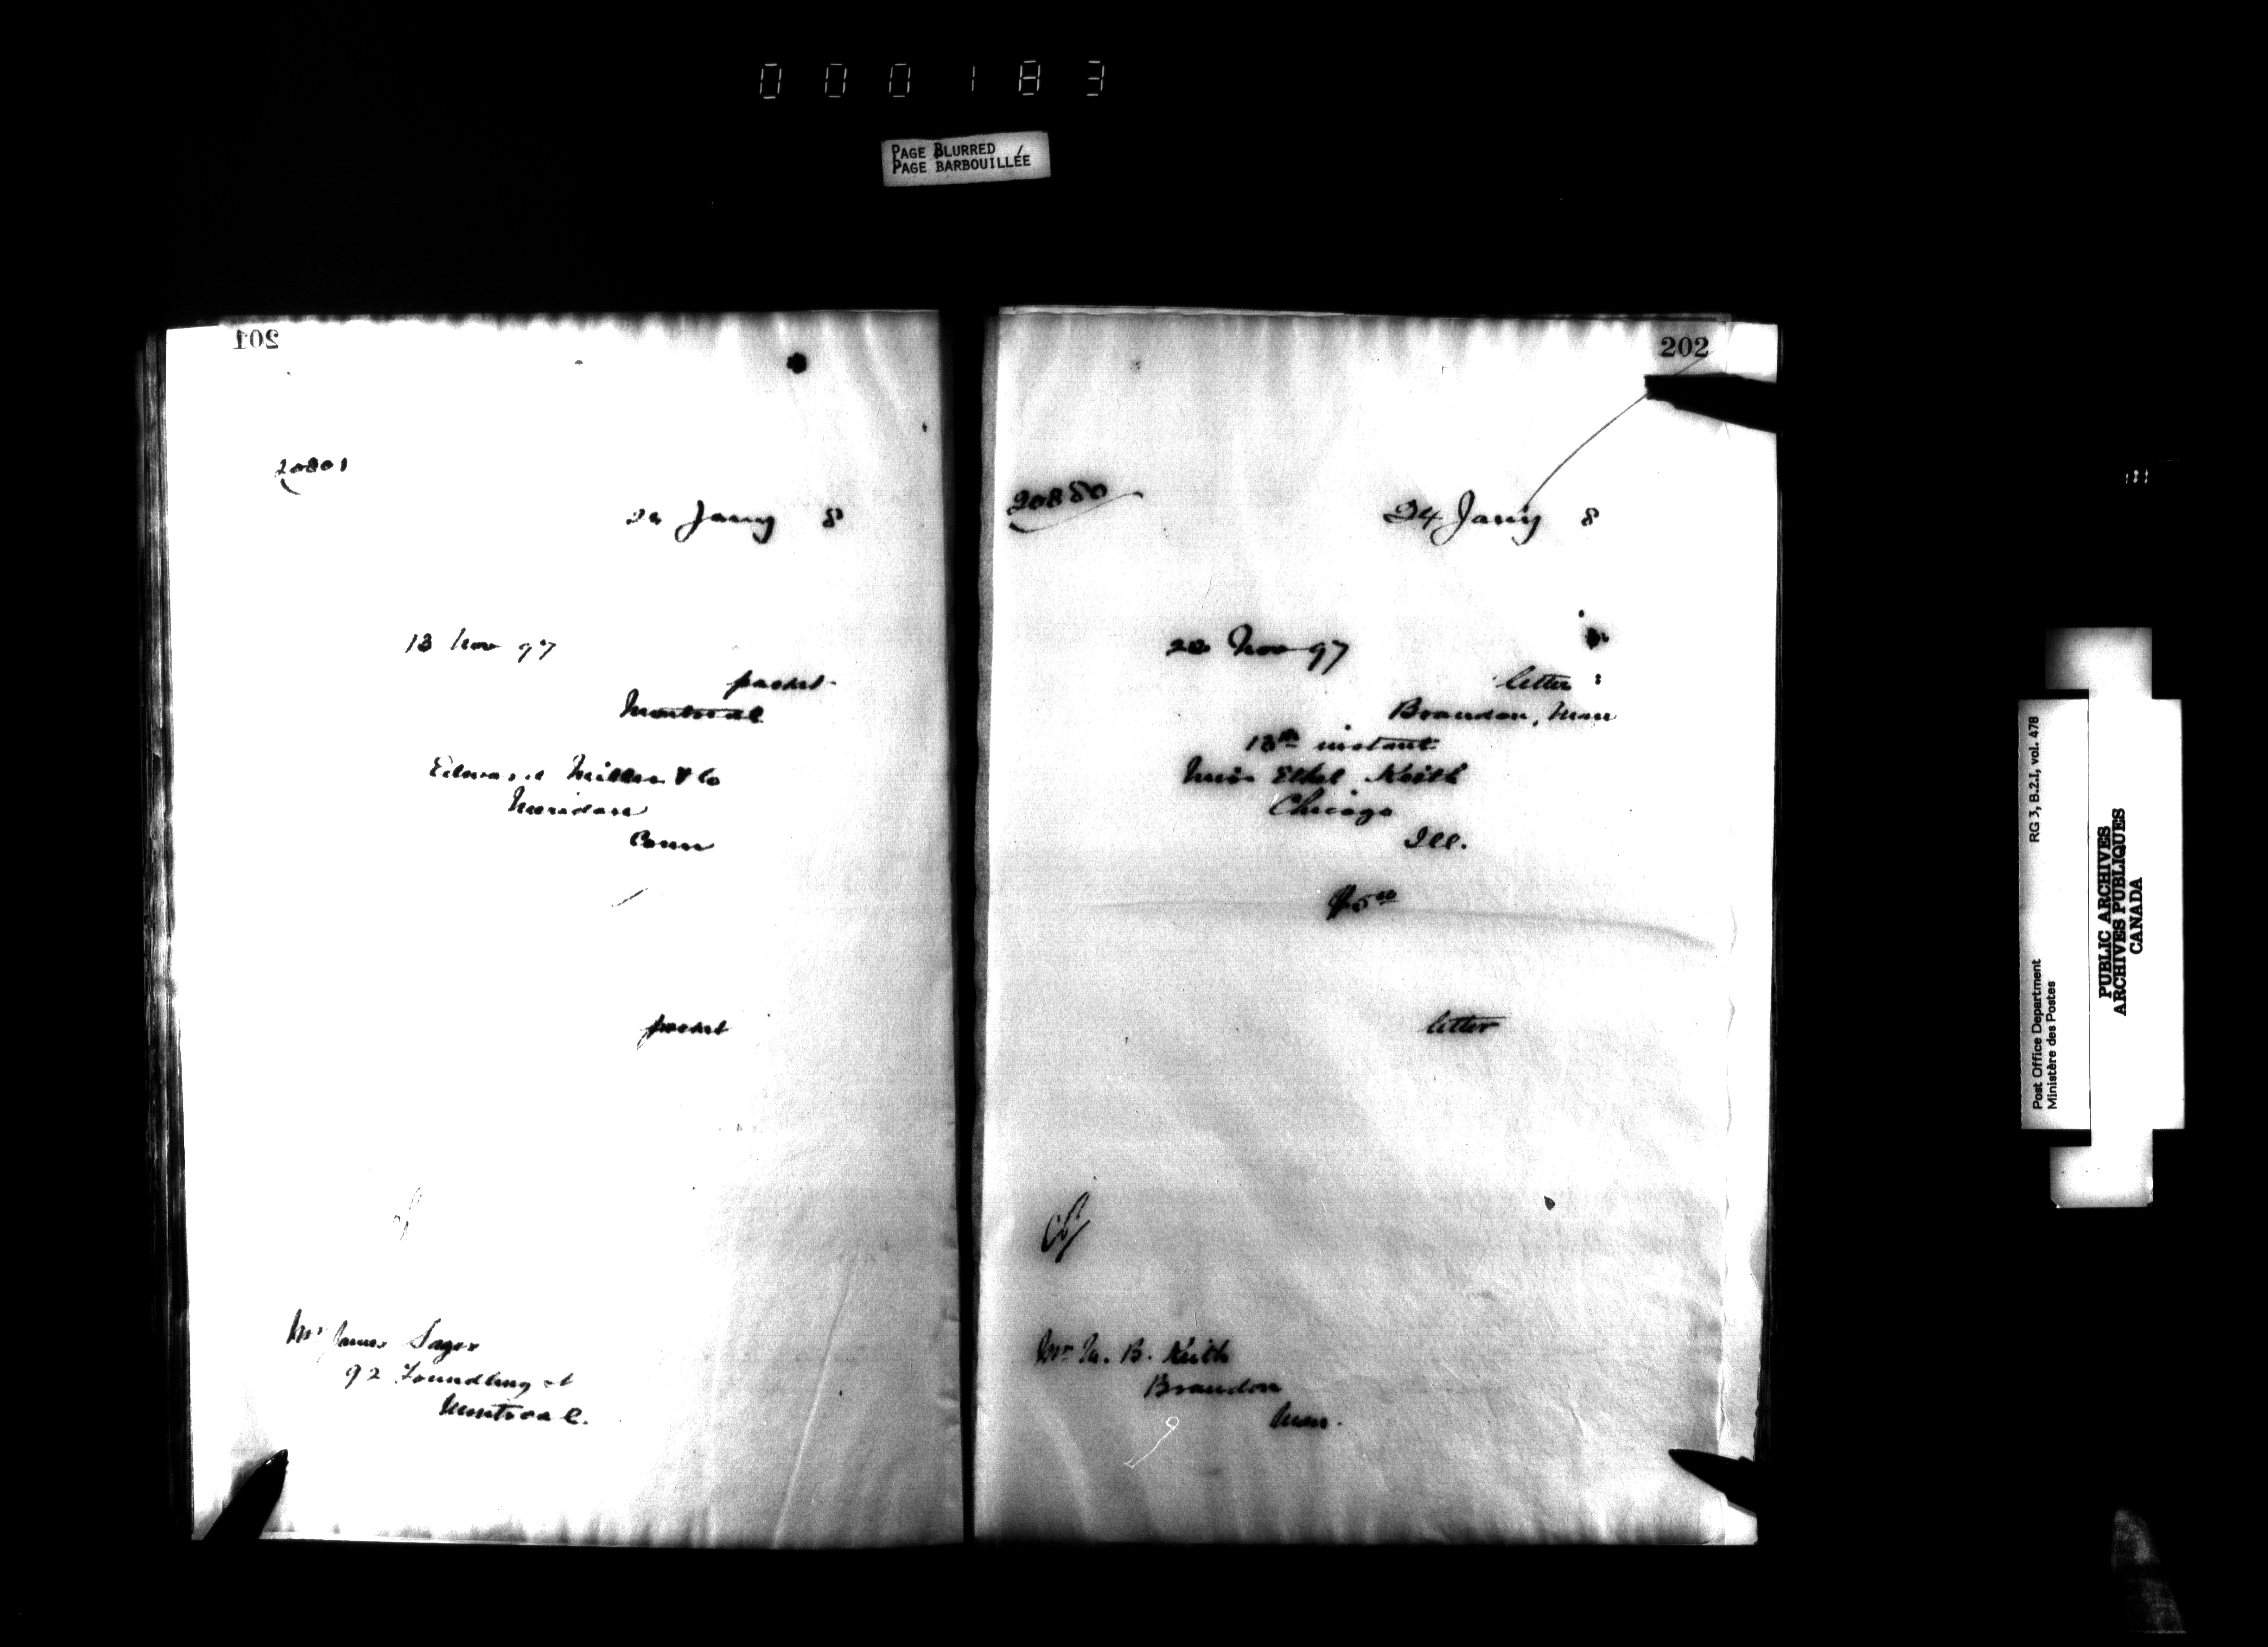 000183
PAGE BLURRED
PAGE BARBOUILLÉE
201
20801
24 Jany 8
13 Nov 97
packet
Montreal
Edward Miller & Co
Meridan
Conn
packet
Mr James Sager
92 Foundling st
Montreal.
202
20880
24 Jany 8
Nov 97
letter
Brandon, Man
13th instant
Miss Ethel Keith
Chicago
Ill.
$5.00
letter
Mr M. B. Keith
Brandon
Man.
Post Office Department
Ministère des Postes
RG 3, B.2.I, vol. 478
PUBLIC ARCHIVES
ARCHIVES PUBLIQUES
CANADA